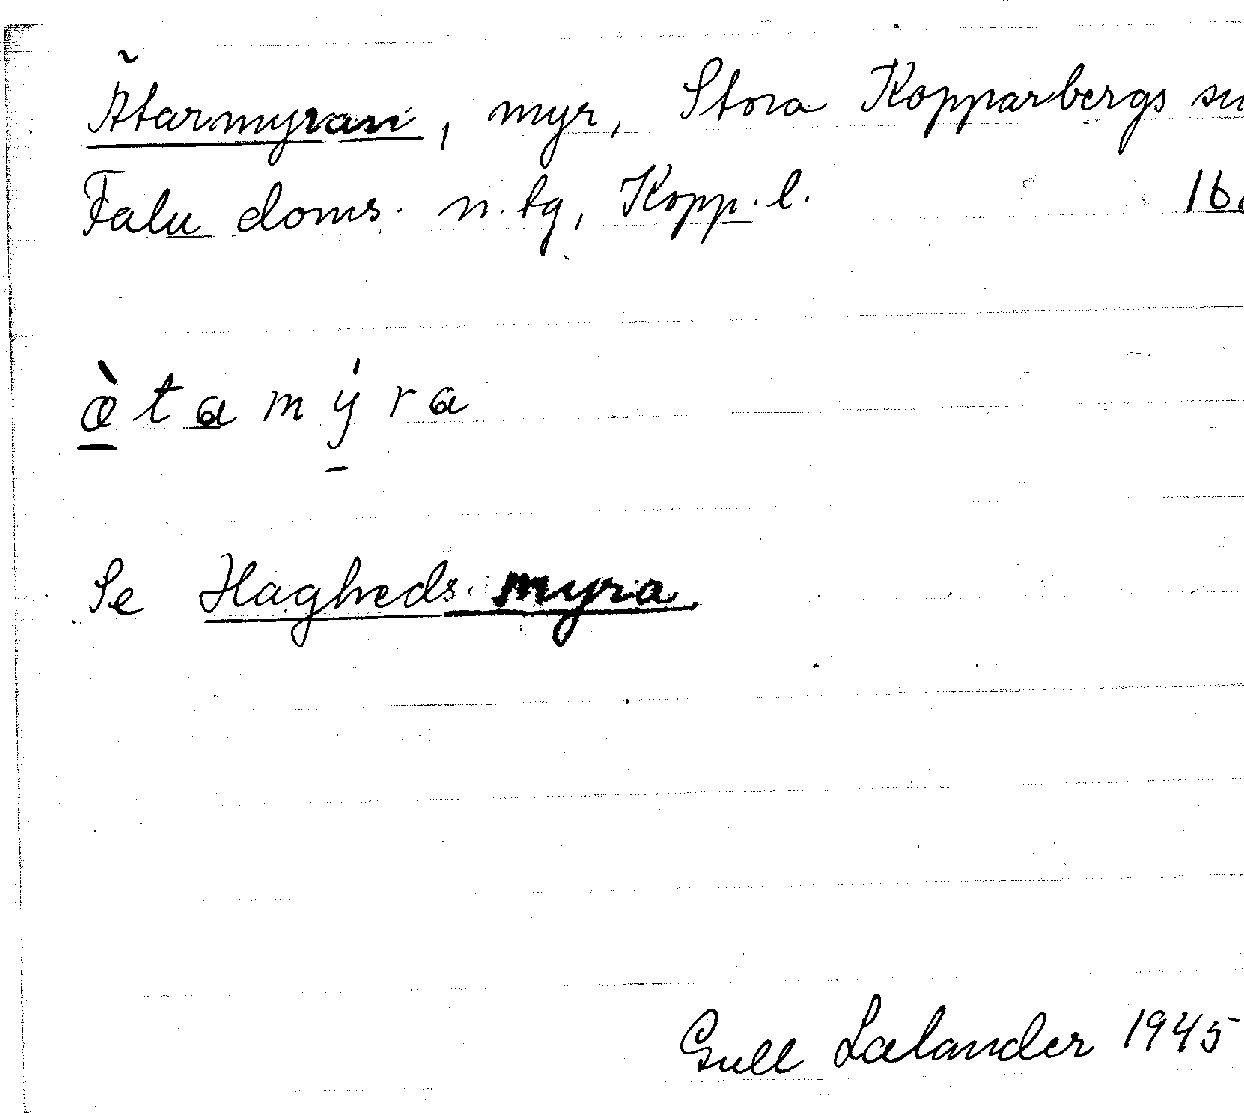 Ätarmyran, myr, Stora Kopparbergs sn
Falu doms. n. tg, Kopp. l. 16
æ̀ t a m ý r a
Se Hagheds myra.
Gull Lælander 1945